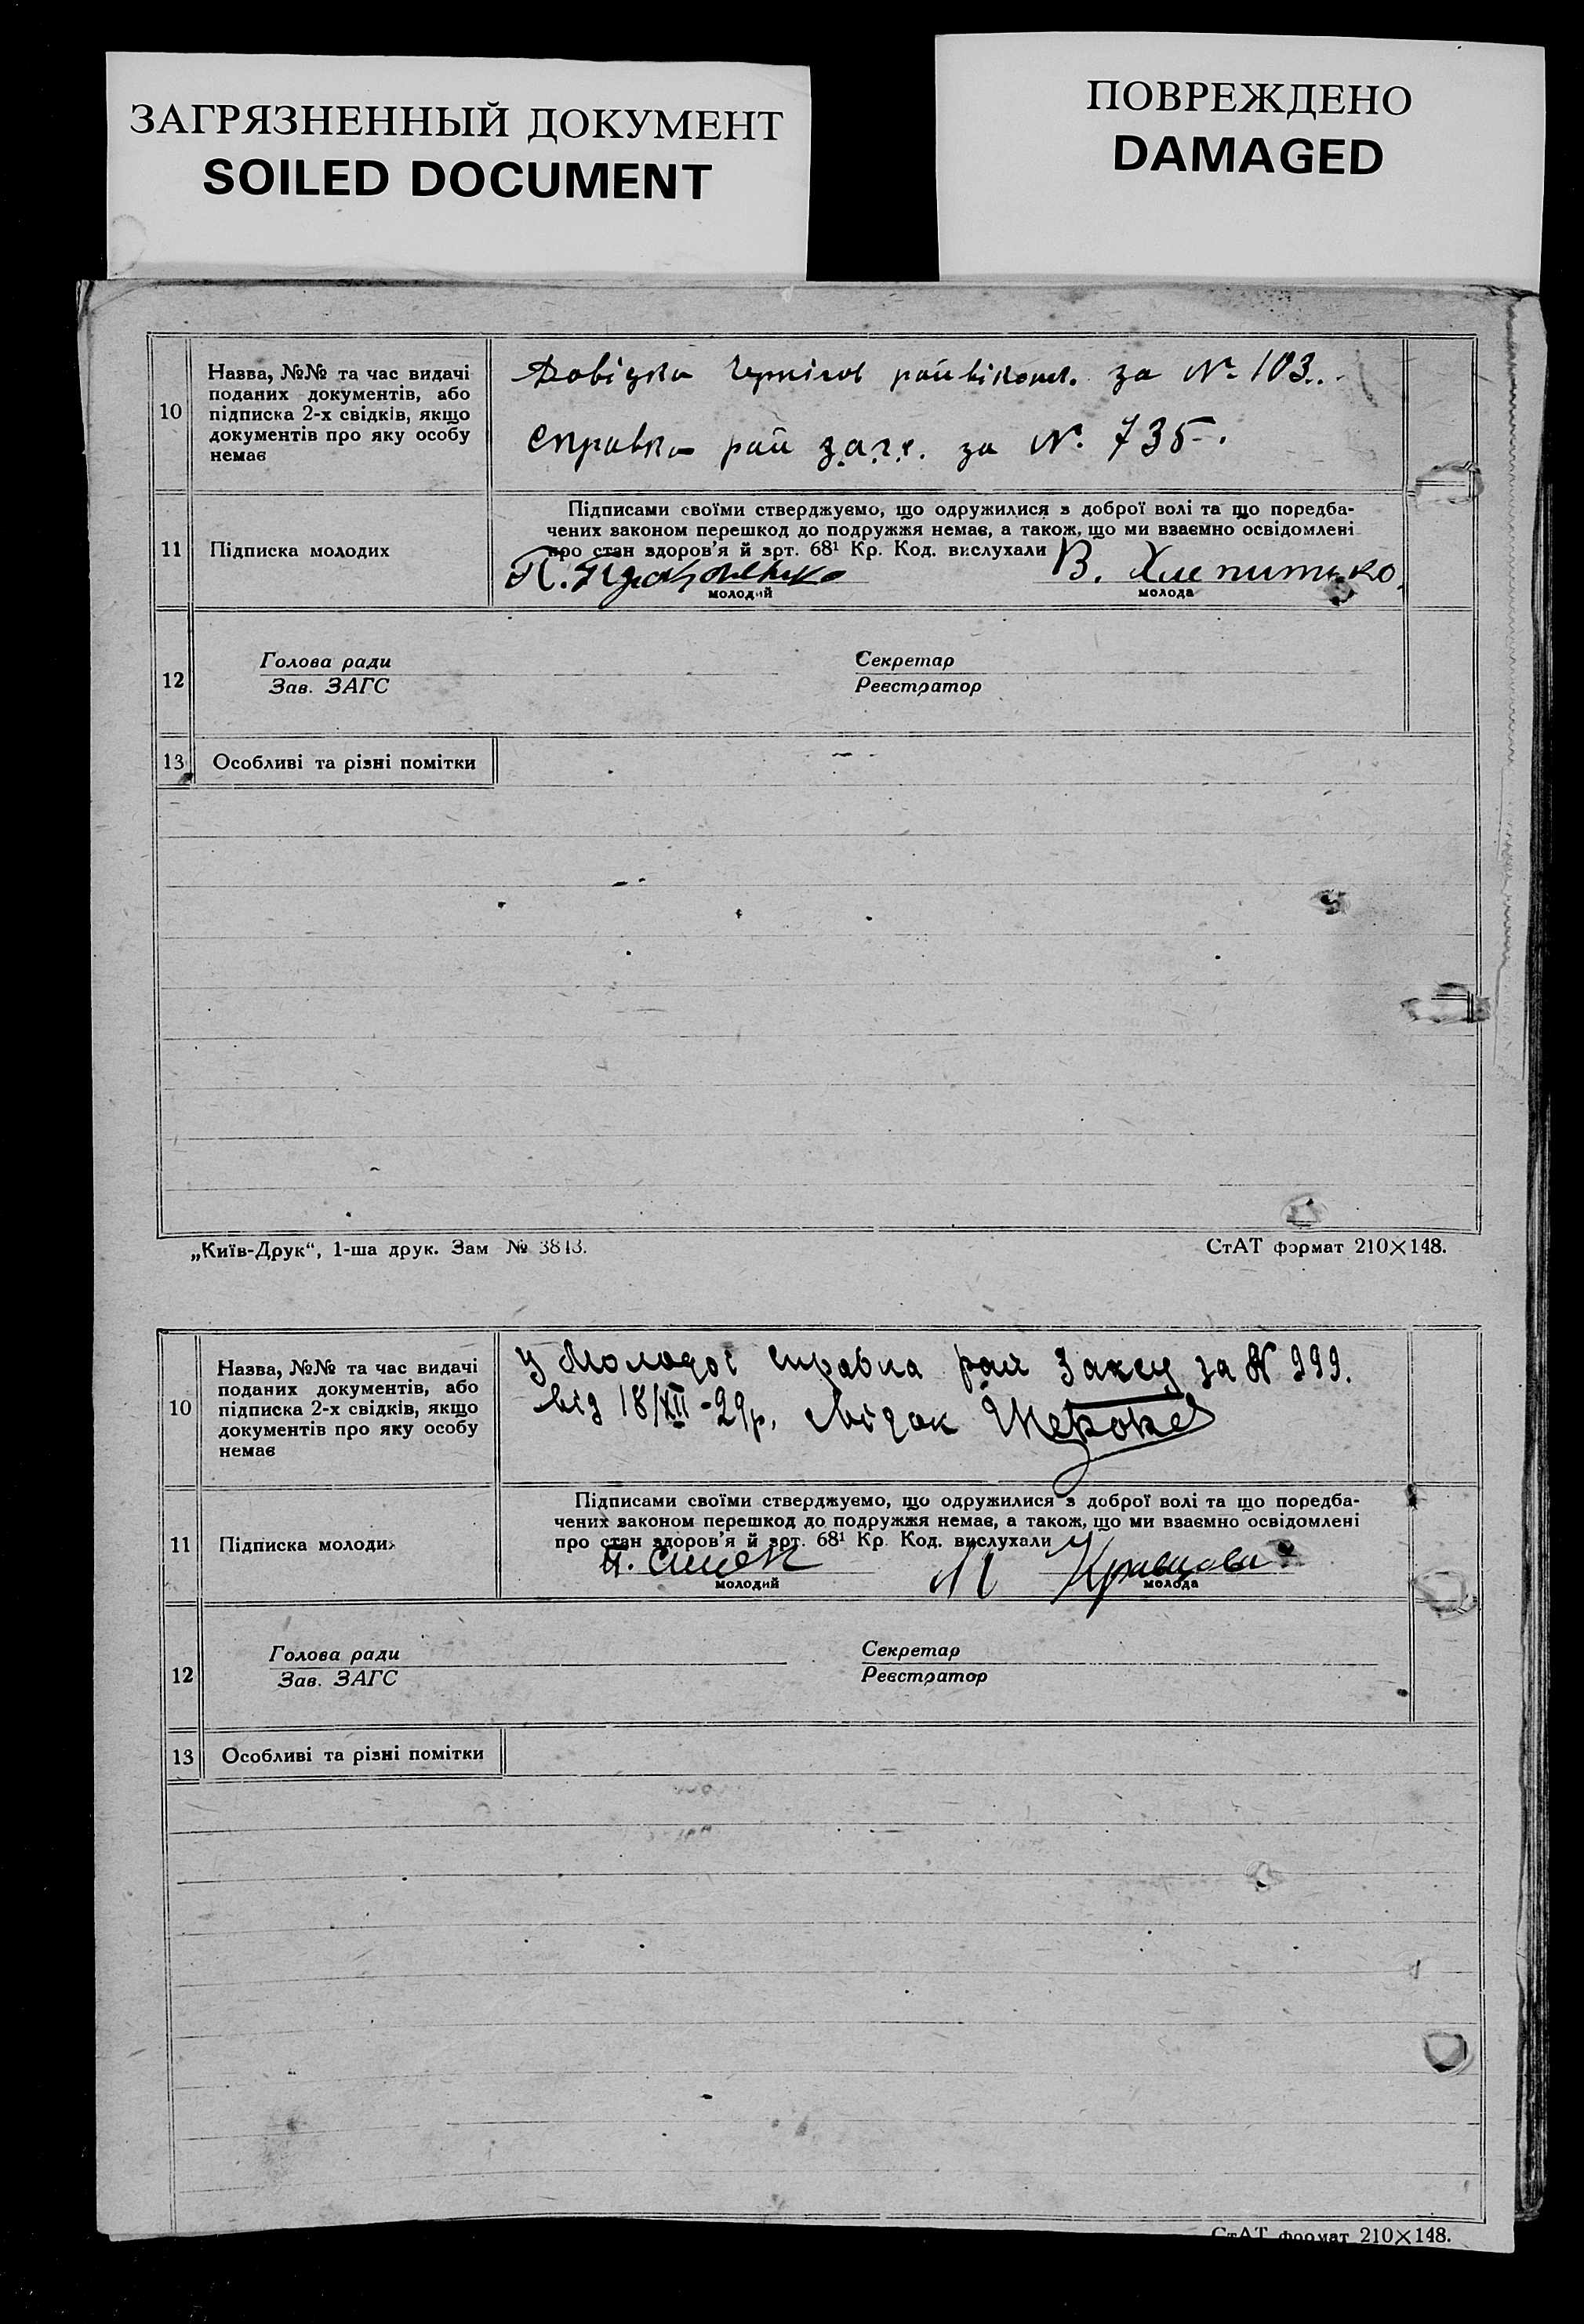 ЗАГРЯЗНЕННЫЙ ДОКУМЕНТ
SOILED DOCUMENT
ПОВРЕЖДЕНО
DAMAGED
10
Назва, №№ та час видачі
поданих документів, або
підписка 2-х свідків, якщо
документів про яку особу
немає
Довідка Чернігов райвіконк. за № 103.
справка рай з.а.г.с. за №. 735.
11
Підписка молодих
Підписами своїми стверджуємо, що одружилися з доброї волі та що поредба-
чених законом перешкод до подружжя немає, а також, що ми взаємно освідомлені
про стан здоров'я й арт. 68¹ Кр. Код. вислухали
П.
В. Хлепитько
молодий
молода
12
Голова ради
Зав. ЗАГС
Секретар
Реєстратор
13
Особливі та різні помітки
„Київ-Друк“, 1-ша друк. Зам № 3813.
СтАТ формат 210×148.
10
Назва, №№ та час видачі
поданих документів, або
підписка 2-х свідків, якщо
документів про яку особу
немає
у Молодої справка рай Загсу за № 999.
від 18/XII-29р. свідок
11
Підписка молодих
Підписами своїми стверджуємо, що одружилися з доброї волі та що поредба-
чених законом перешкод до подружжя немає, а також, що ми взаємно освідомлені
про стан здоров'я й арт. 68¹ Кр. Код. вислухали
М Кравцова
молодий
молода
12
Голова ради
Зав. ЗАГС
Секретар
Реєстратор
13
Особливі та різні помітки
СтАТ формат 210×148.